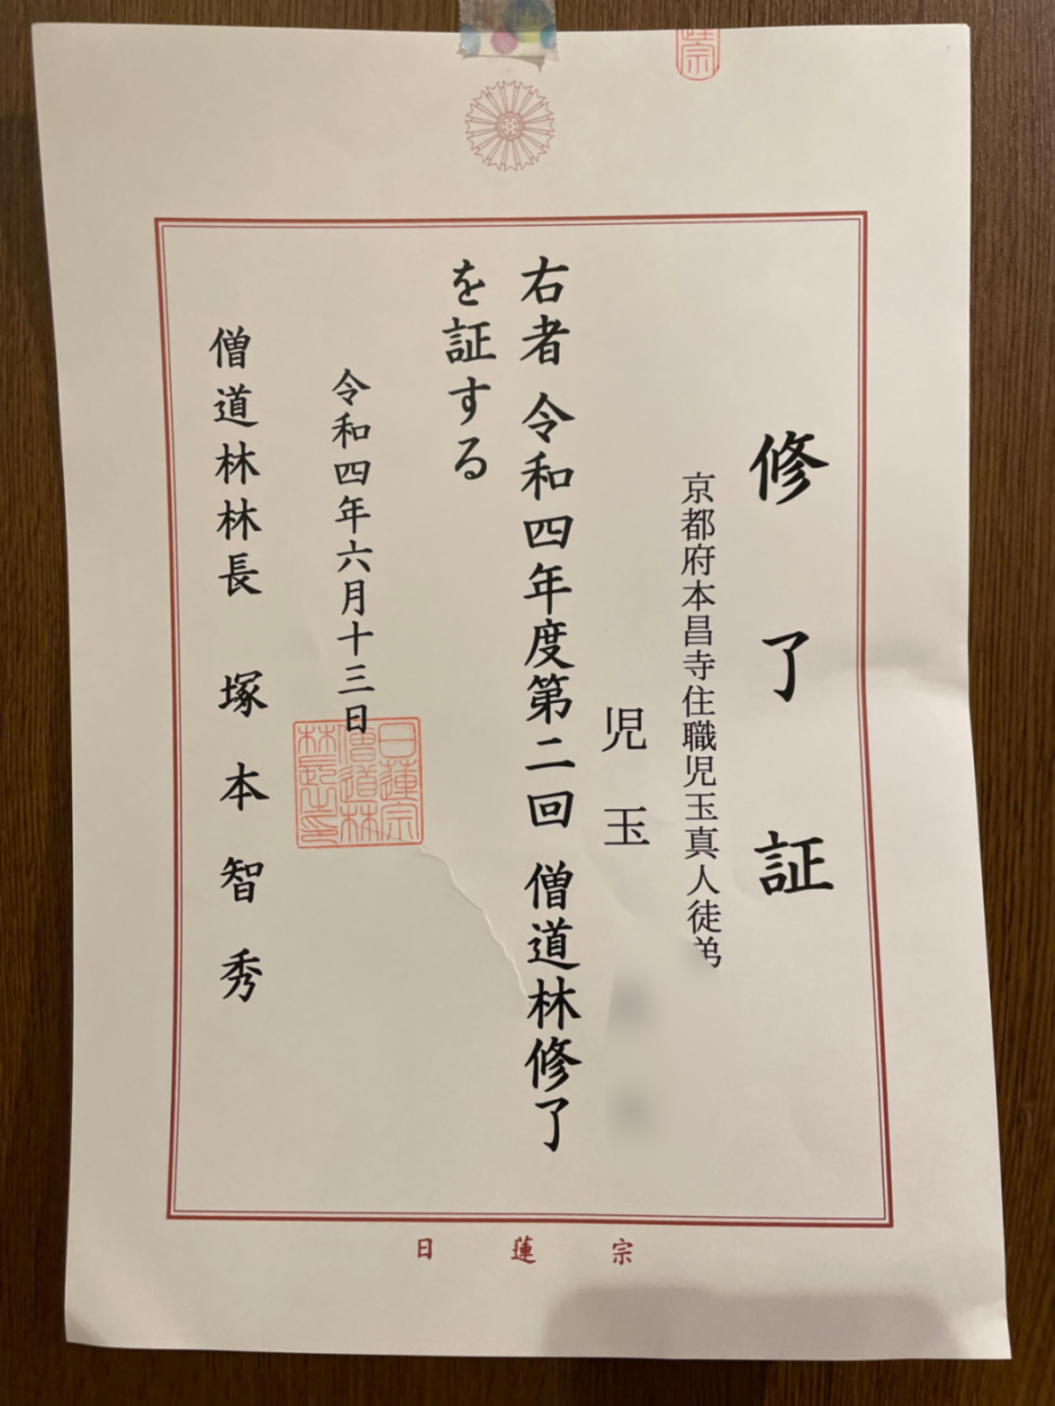 修了証
京都府本昌寺住職児玉真人徒弟
児玉
右者 令和四年度第二回 僧道林修了
を証する
令和四年六月十三日
日蓮宗
僧道林
林長之印
僧道林林長 塚本智秀
日蓮宗